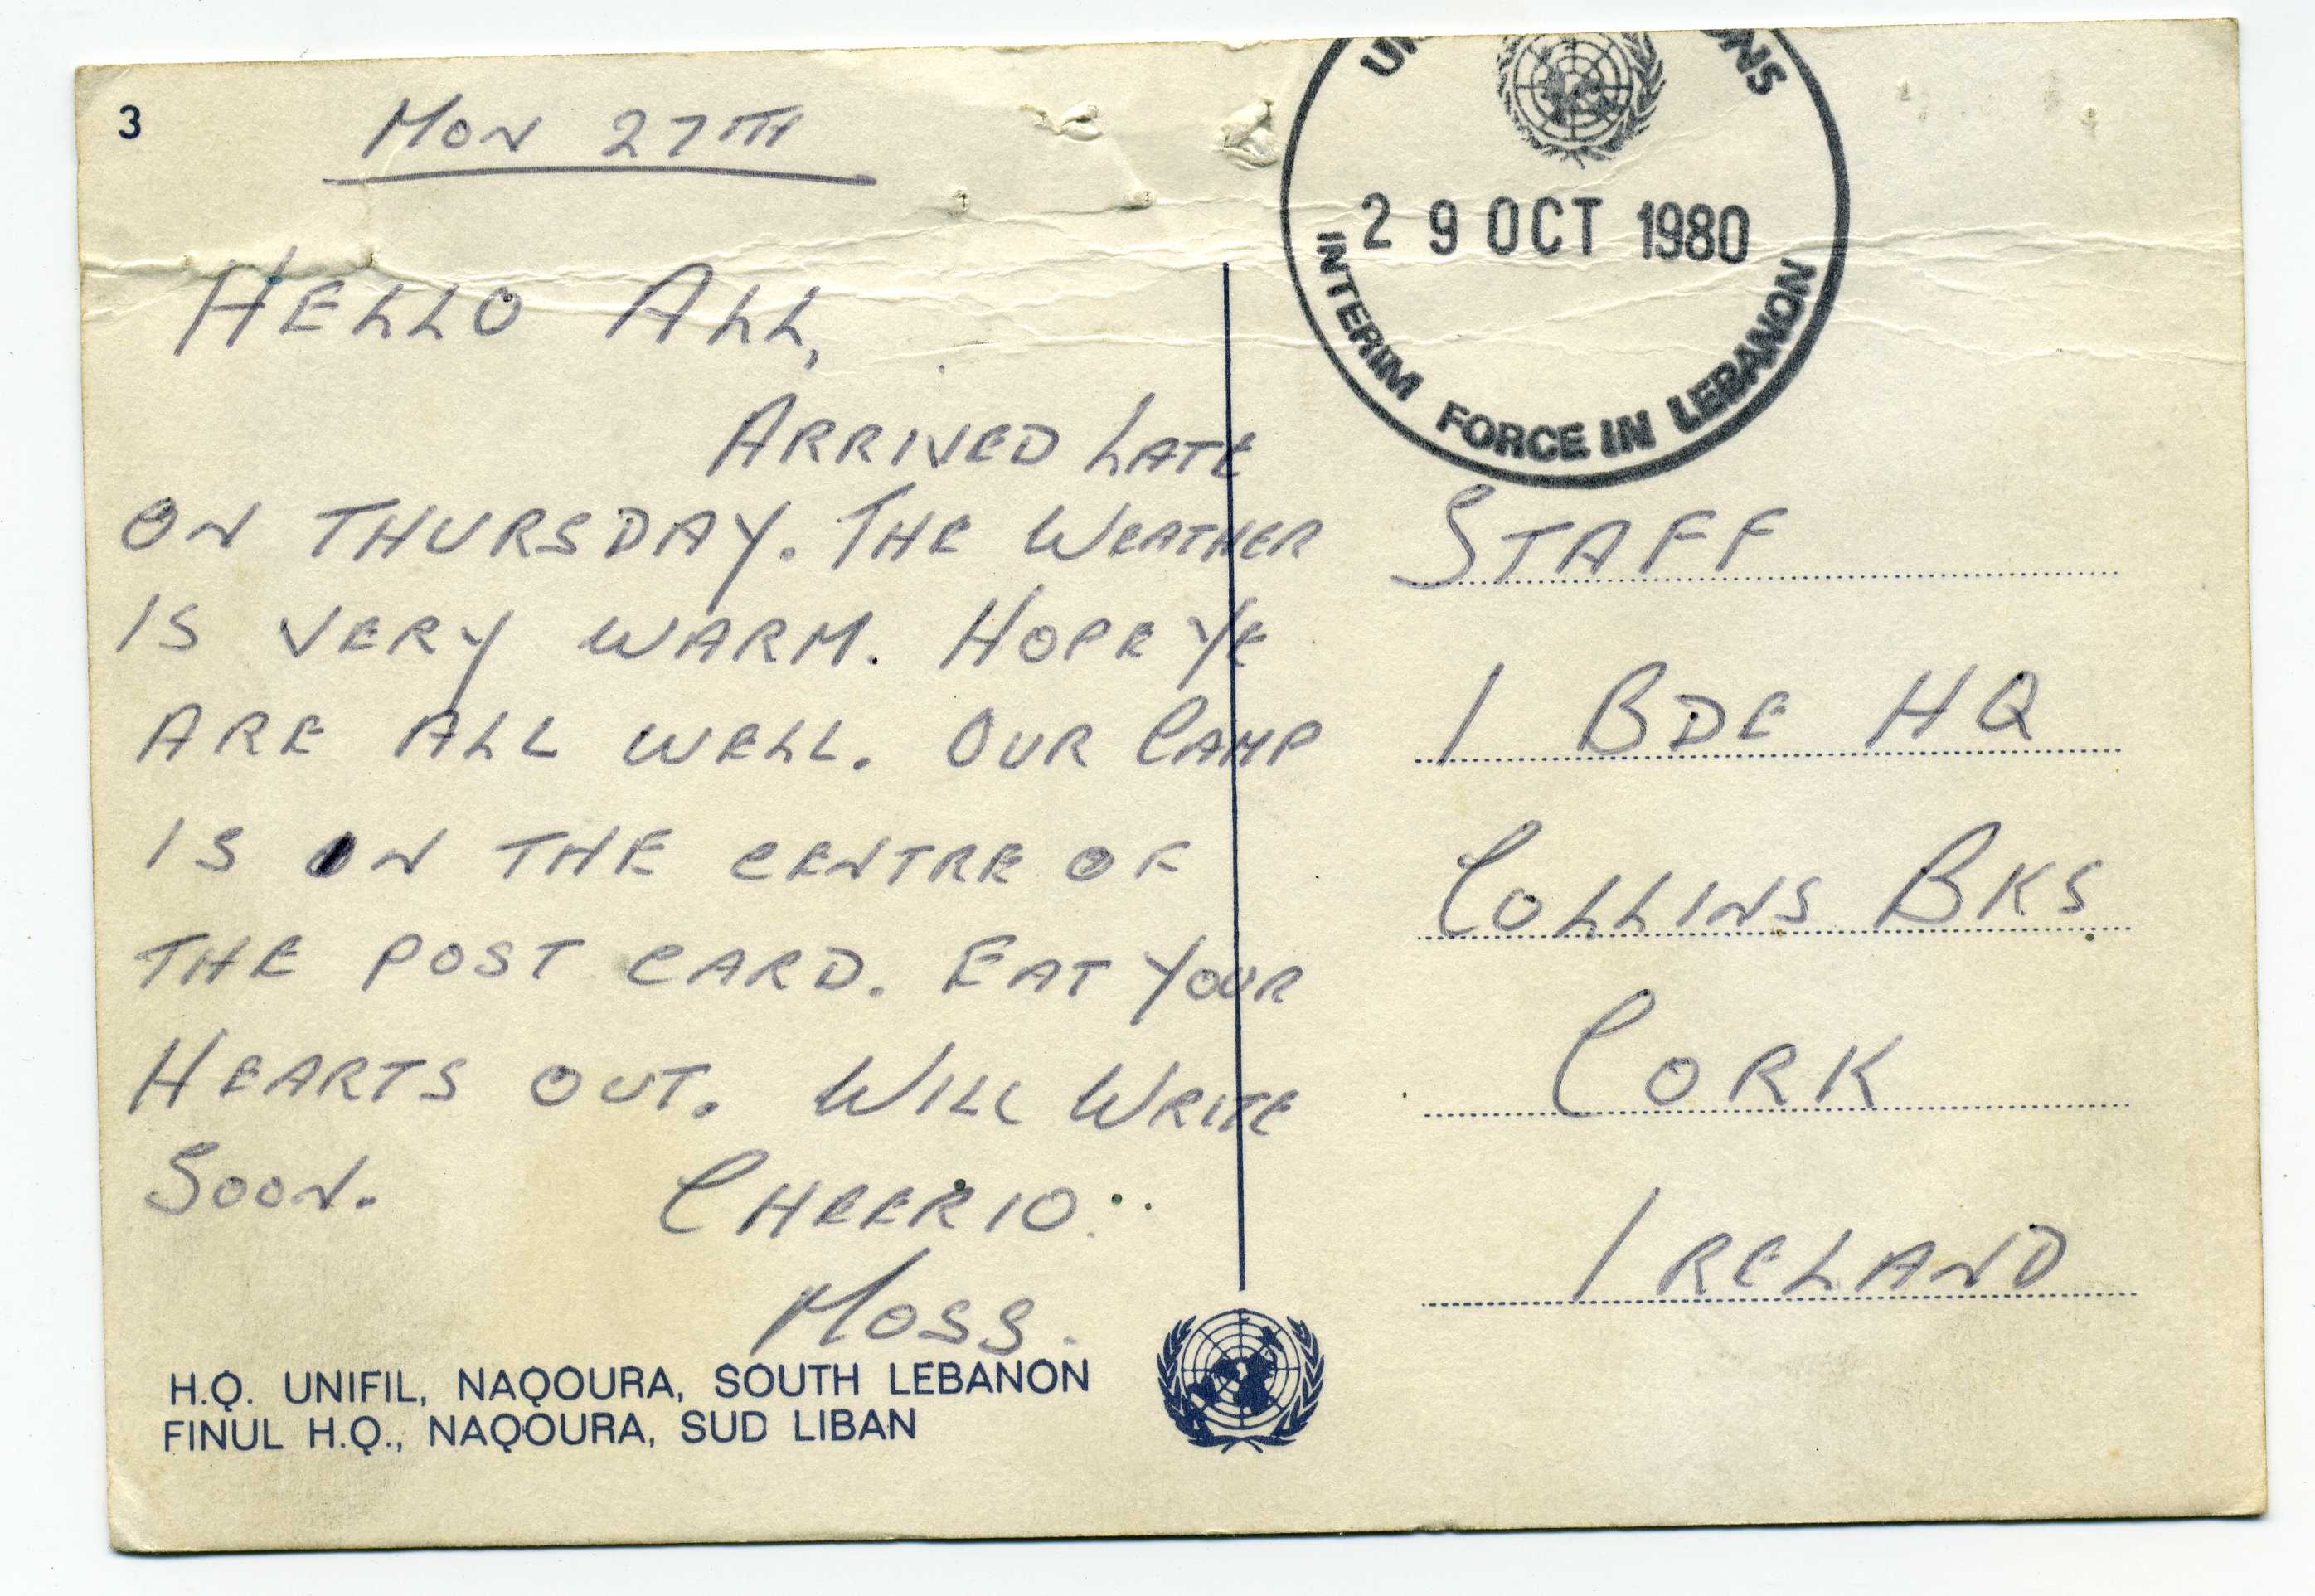 3
MON 27TH
HELLO ALL,
ARRIVED LATE
ON THURSDAY. THE WEATHER
IS VERY WARM. HOPE YE
ARE ALL WELL. OUR CAMP
IS IN THE CENTRE OF
THE POST CARD. EAT YOUR
HEARTS OUT. WILL WRITE
SOON. CHEERIO.
MOSS.
H.Q. UNIFIL, NAQOURA, SOUTH LEBANON
FINUL H.Q., NAQOURA, SUD LIBAN
29 OCT 1980
INTERIM FORCE IN LEBANON
STAFF
1 BDE HQ
COLLINS BKS
CORK
IRELAND